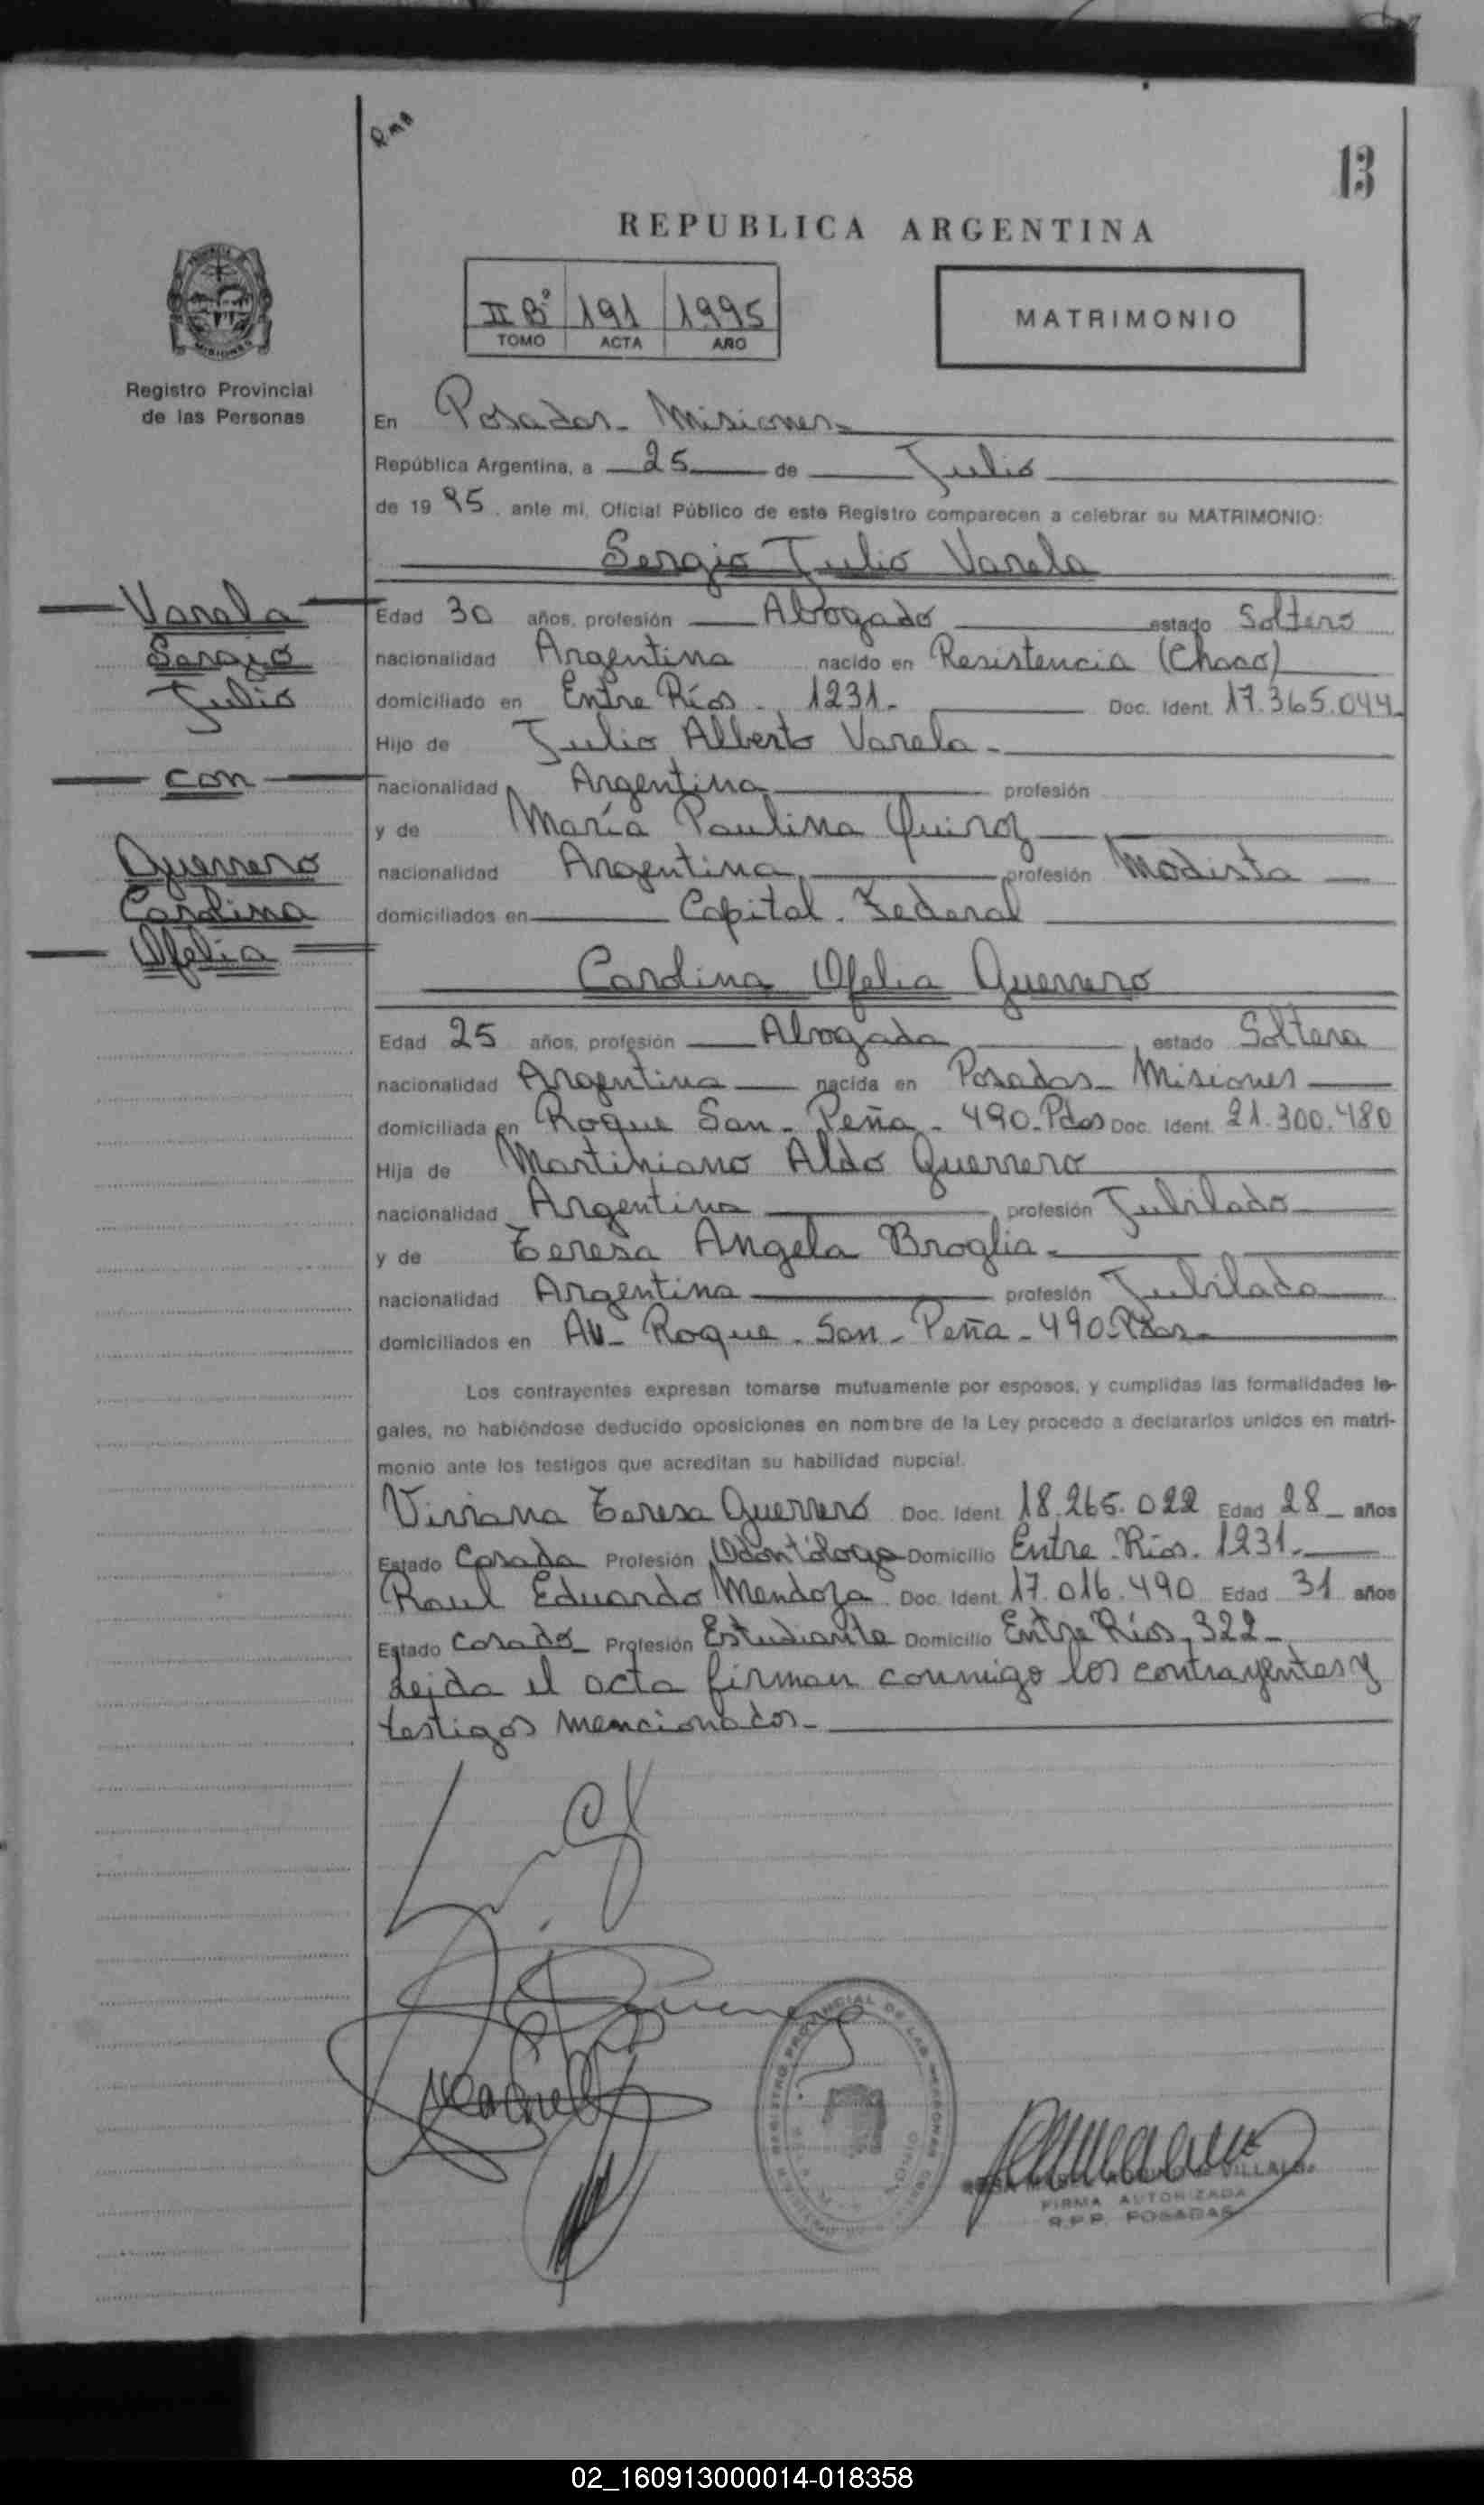 RMA
13
REPUBLICA ARGENTINA
II Bº 191 1995
TOMO ACTA AÑO
MATRIMONIO
MISIONES
Registro Provincial
de las Personas
En Posadas - Misiones
República Argentina, a 25 de Julio
de 19 95, ante mí, Oficial Público de este Registro comparecen a celebrar su MATRIMONIO:
Sergio Julio Varela
Varela
Sergio
Julio
con
Guerrero
Carolina
Ofelia
Edad 30 años, profesión Abogado estado Soltero
nacionalidad Argentina nacido en Resistencia (Chaco)
domiciliado en Entre Ríos - 1231 - Doc. Ident. 17.365.044
Hijo de Julio Alberto Varela -
nacionalidad Argentina profesión
y de María Paulina Quiroz
nacionalidad Argentina profesión Modista
domiciliados en Capital - Federal
Carolina Ofelia Guerrero
Edad 25 años, profesión Abogada estado Soltera
nacionalidad Argentina nacida en Posadas - Misiones
domiciliada en Roque San - Peña - 490 - Pdas Doc. Ident. 21.300.480
Hija de Martiniano Aldo Guerrero
nacionalidad Argentina profesión Jubilado
y de Teresa Angela Broglia -
nacionalidad Argentina profesión Jubilada
domiciliados en Av - Roque - San - Peña - 490 - Pdas -
Los contrayentes expresan tomarse mutuamente por esposos, y cumplidas las formalidades le-
gales, no habiéndose deducido oposiciones en nombre de la Ley procedo a declararlos unidos en matri-
monio ante los testigos que acreditan su habilidad nupcial.
Viviana Teresa Guerrero Doc. Ident. 18.265.022 Edad 28 años
Estado Casada Profesión Odontóloga Domicilio Entre Ríos - 1231 -
Raul Eduardo Mendoza Doc. Ident. 17.016.490 Edad 31 años
Estado Casado Profesión Estudiante Domicilio Entre Ríos - 322 -
Leída el acta firman conmigo los contrayentes y
testigos mencionados -
REGISTRO PROVINCIAL DE LAS PERSONAS
VILLALBA
FIRMA AUTORIZADA
R.P.P. POSADAS
02_160913000014-018358